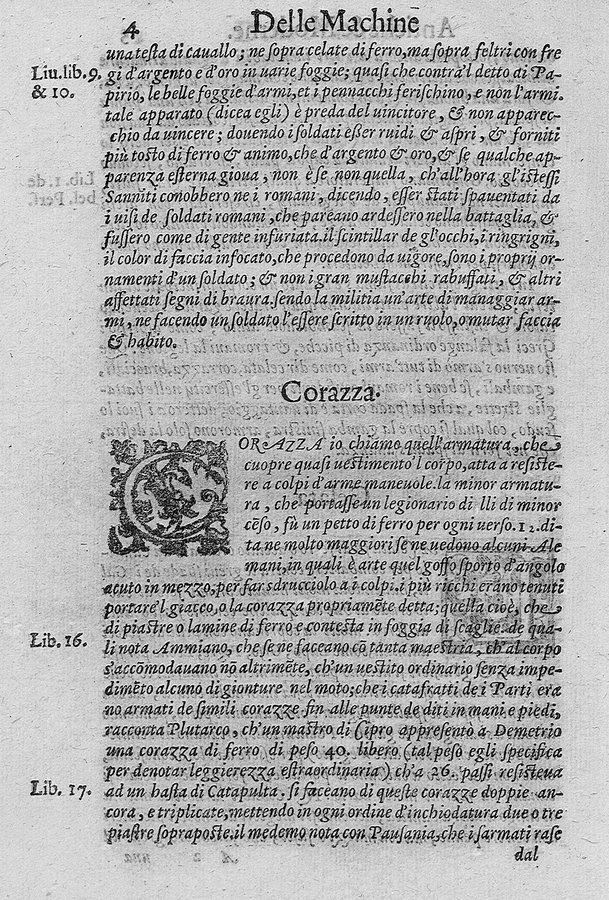 4 Delle Machine
una testa di cauallo; ne sopra celate di ferro, ma sopra feltri con fre
Liu. lib. 9. gi d'argento e d'oro in uarie foggie; quasi che contra'l detto di Pa-
& 10. pirio, le belle foggie d'armi, et i pennacchi ferischino, e non l'armi.
tale apparato (dicea egli) è preda del uincitore, & non apparec-
chio da uincere; douendo i soldati eßer ruidi & aspri, & forniti
più tosto di ferro & animo, che d'argento & oro, & se qualche ap-
parenza esterna gioua, non è se non quella, ch'all'hora gl'istessi
Sanniti conobbero ne i romani, dicendo, esser stati spauentati da
i uisi de soldati romani, che pareano ardessero nella battaglia, &
fussero come di gente infuriata. il scintillar de gl'occhi, i ringrigni,
il color di faccia infocato, che procedono da uigore, sono i proprij or-
namenti d'un soldato; & non i gran mustacchi rabuffati, & altri
affettati segni di braura. sendo la militia un'arte di managgiar ar-
mi, ne facendo un soldato l'essere scritto in un ruolo, o mutar faccia
& habito.
Corazza.
CORAZZA io chiamo quell'armatura, che
cuopre quasi uestimento'l corpo, atta a resiste-
re a colpi d'arme maneuole. la minor armatu-
ra, che portasse un legionario di lli di minor
cẽso, fù un petto di ferro per ogni uerso. 12. di-
ta ne molto maggiori se ne uedono alcuni Ale
mani, in quali è arte quel goffo sporto d'angolo
acuto in mezzo, per far sdrucciolo a i colpi. i più ricchi erano tenuti
portare'l giacco, o la corazza propriamẽte detta; quella cioè, che
di piastre o lamine di ferro e contesta in foggia di scaglie. de qua-
Lib. 16. li nota Ammiano, che se ne faceano cõ tanta maestria, ch'al corpo
s'accõmodauano nõ altrimẽte, ch'un uestito ordinario senza impe-
dimẽto alcuno di gionture nel moto; che i catafratti de i Parti era
no armati de simili corazze fin alle punte de diti in mani e piedi,
racconta Plutarco, ch'un mastro di Cipro appresentò a Demetrio
una corazza di ferro di peso 40. libero (tal peso egli specifica
per denotar leggierezza estraordinaria) ch'a 26. passi resisteua
Lib. 17. ad un hasta di Catapulta. si faceano di queste corazze doppie an-
cora, e triplicate, mettendo in ogni ordine d'inchiodatura due o tre
piastre sopraposte. il medemo nota con Pausania, che i sarmati rase
dal